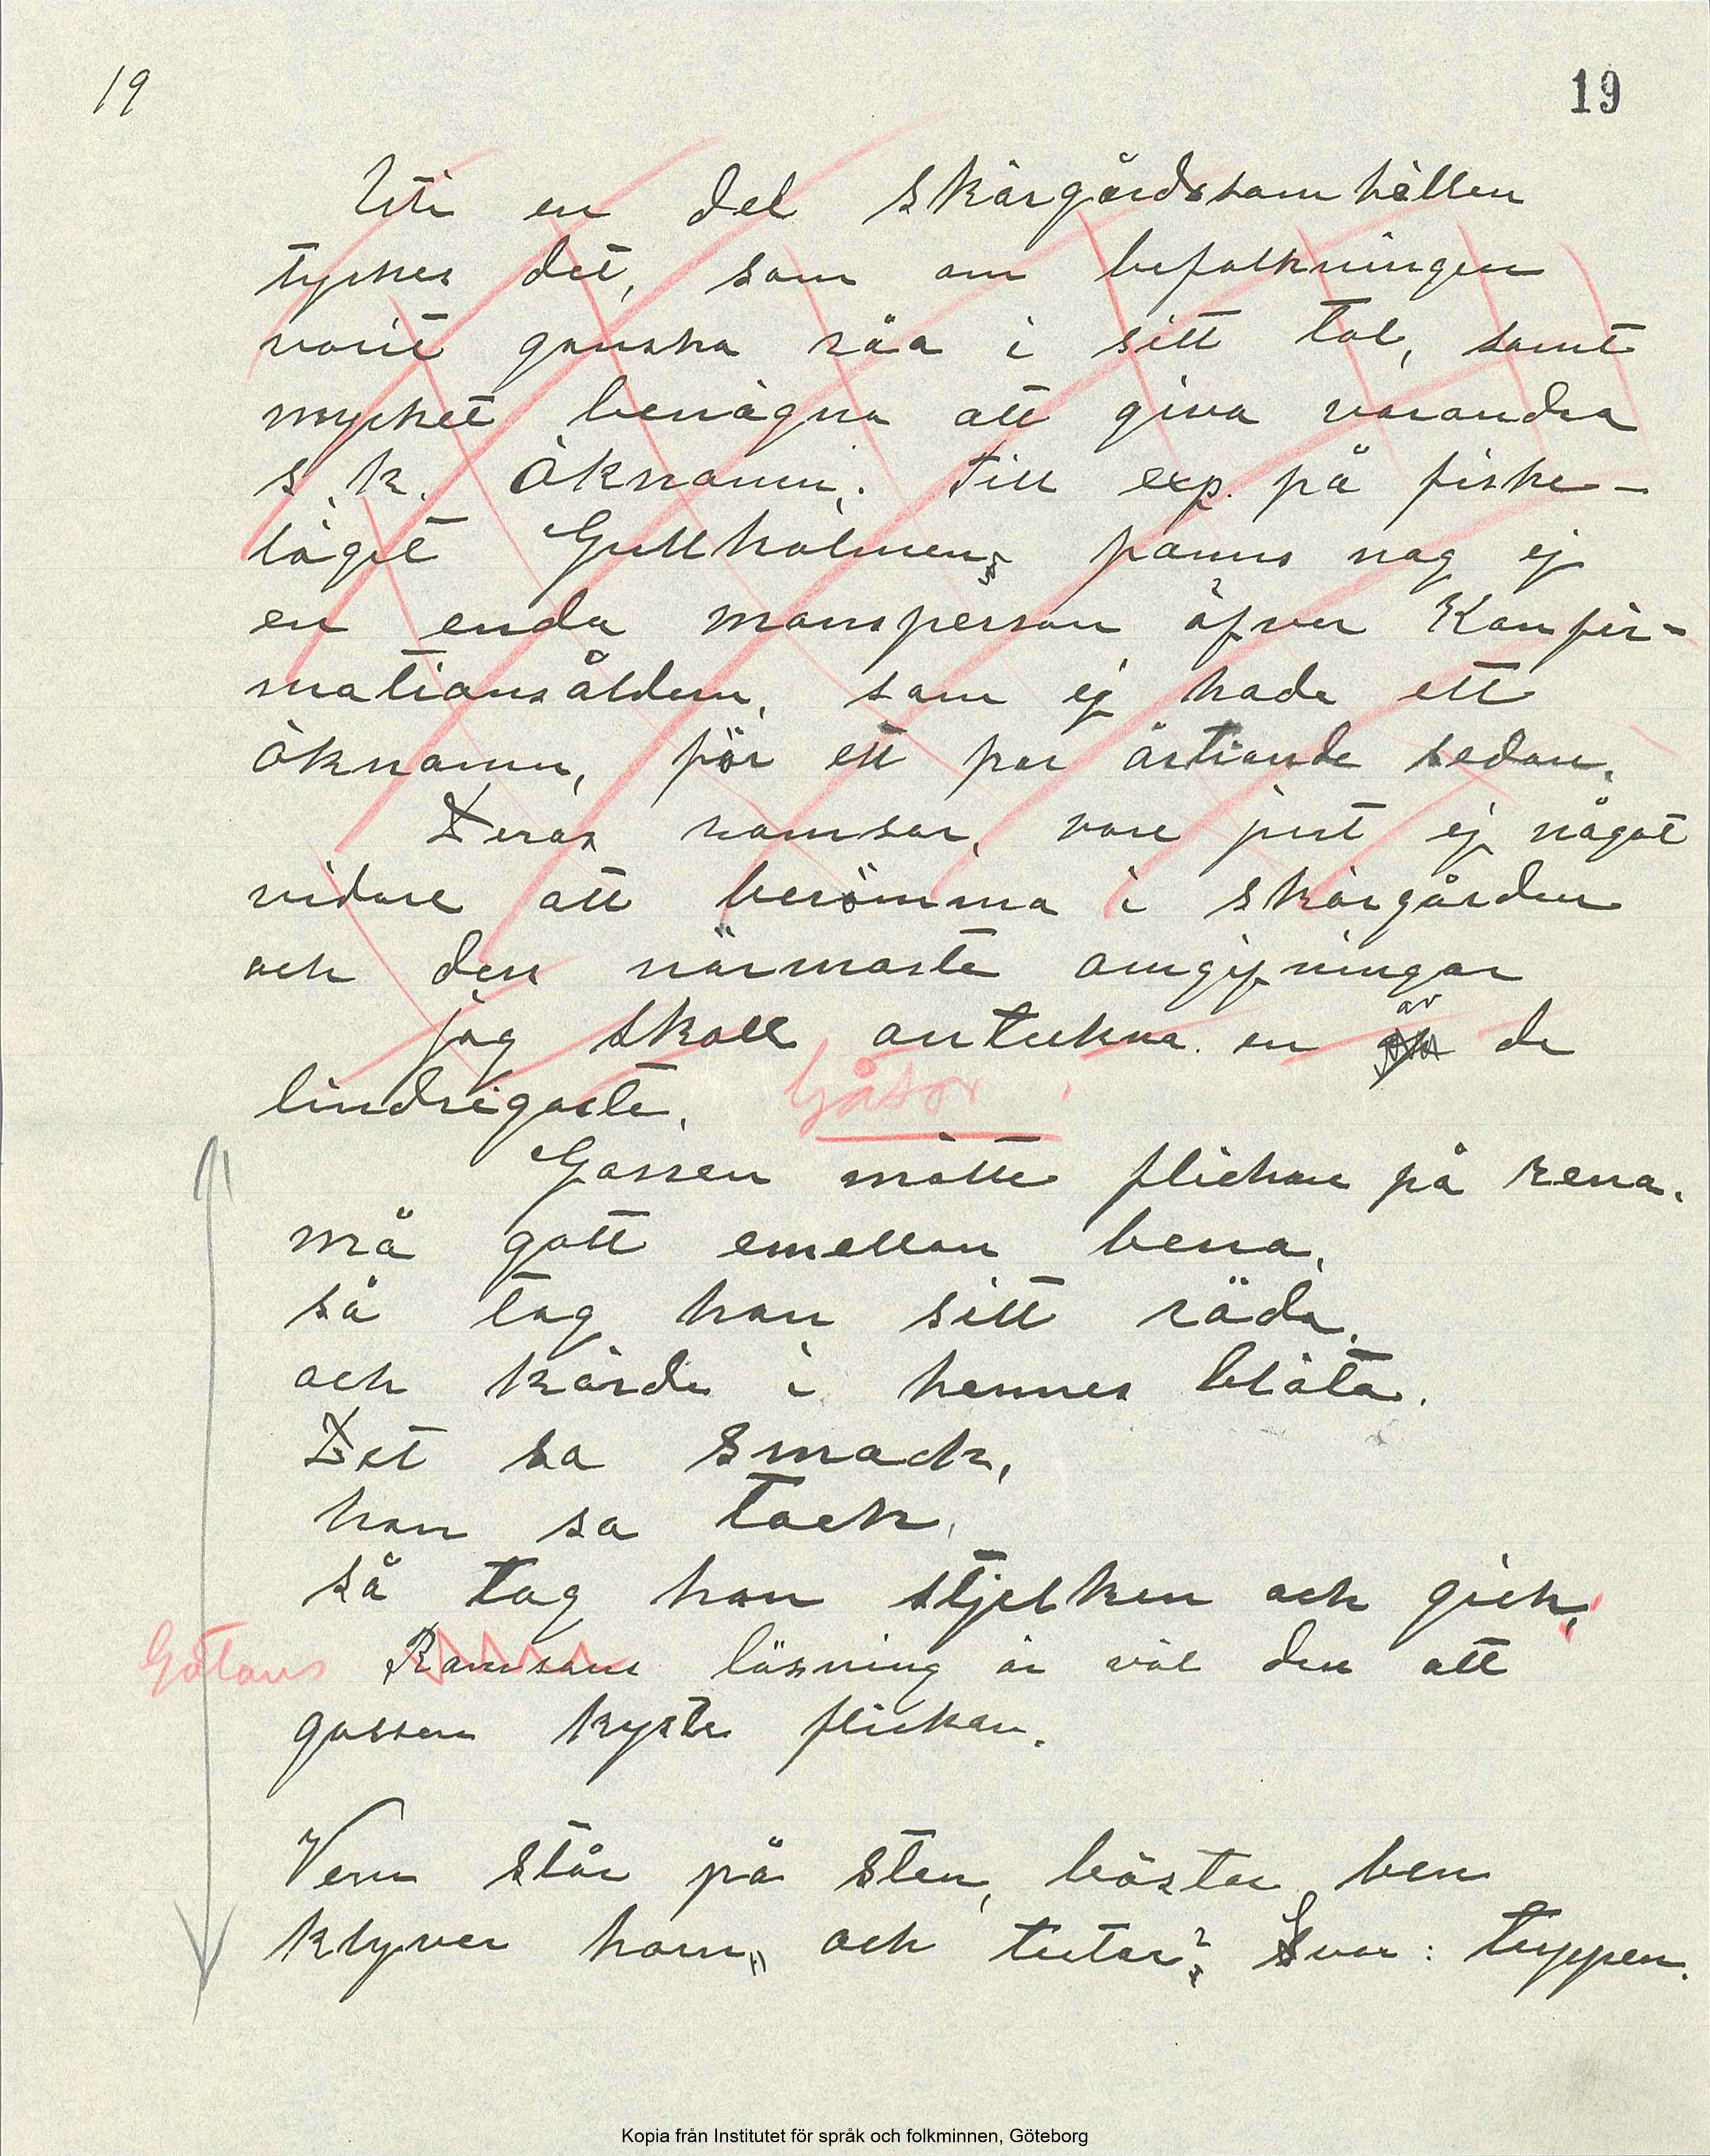 19
19
Uti en del skärgårdssamhällen
tyckes det, som om befolkningen
varit ganska råa i sitt tal, samt
mycket benägna att giva varandra
s. k. Öknamn. till exp. på fiske-
läget Gullholmen, fanns nog ej
en enda mansperson öfver Konfir-
mationsåldern, som ej hade ett
öknamn, för ett par årtionde sedan.
Deras ramsor, vore just ej något
vidare att berömma i skärgården
och dess närmaste omgifningar
jag skall anteckna en av de
lindrigaste.
Gåtor
Gossen mötte flickan på rena.
må gott emellan bena,
så tog han sitt röda,
och körde i hennes blöta.
Det sa smack,
han sa tack,
så tog han stjelken och gick.
Gåtans Ramsans lösning är väl den att
gossen kysste flickan.
Vem står på sten, böster ben
klyver horn, och tutar? Svar: tuppen.
Kopia från Institutet för språk och folkminnen, Göteborg